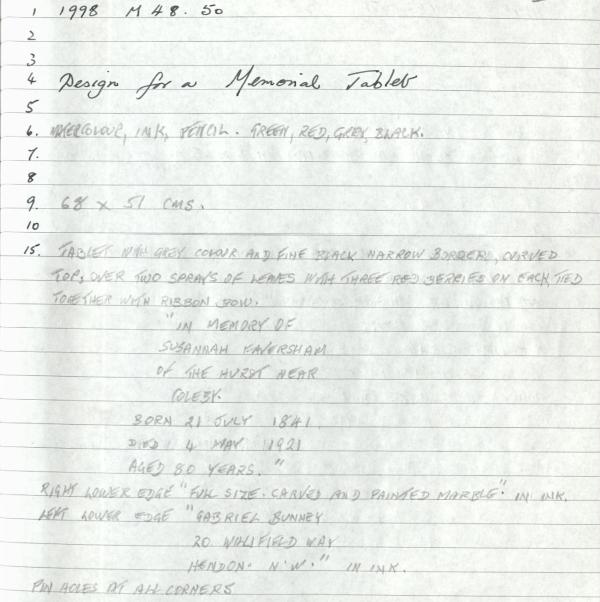 1 1998 M 48. 50
2
3
4 Design for a Memorial Tablet
5
6. WATERCOLOUR, INK, PENCIL. GREEN, RED, GREY, BLACK.
7.
8
9. 68 x 51 CMS.
10
15. TABLET WITH GREY COLOUR AND FINE BLACK NARROW BORDER, CURVED
TOP, OVER TWO SPRAYS OF LEAVES WITH THREE RED BERRIES ON EACH, TIED
TOGETHER WITH RIBBON BOW.
"IN MEMORY OF
SUSANNAH FAVERSHAM
OF THE HURST NEAR
COLEBY.
BORN 21 JULY 1841
DIED 4 MAY 1921
AGED 80 YEARS."
RIGHT LOWER EDGE "FULL SIZE. CARVED AND PAINTED MARBLE." IN INK.
LEFT LOWER EDGE "GABRIEL BUNNEY
20 WILLIFIELD WAY
HENDON. N.W." IN INK.
PIN HOLES AT ALL CORNERS